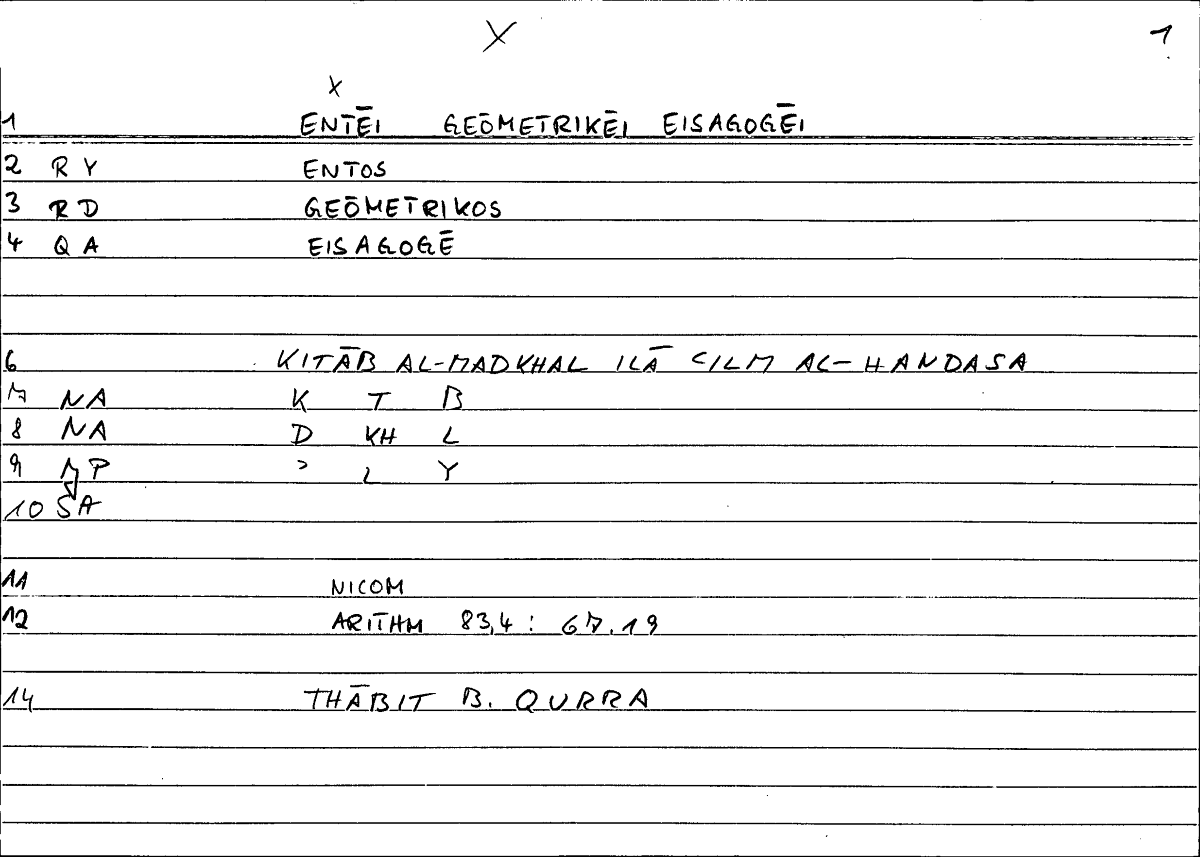 X 1
X
1 ENTĒI GEŌMETRIKĒI EISAGOGĒI
2 RY ENTOS
3 RD GEŌMETRIKOS
4 QA EISAGOGĒ
6 KITĀB AL-MADKHAL ILĀ ʿILM AL-HANDASA
7 NA K T B
8 NA D KH L
9 MP ʾ L Y
10 SA
11 NICOM
12 ARITHM 83,4 : 67.19
14 THĀBIT B. QURRA